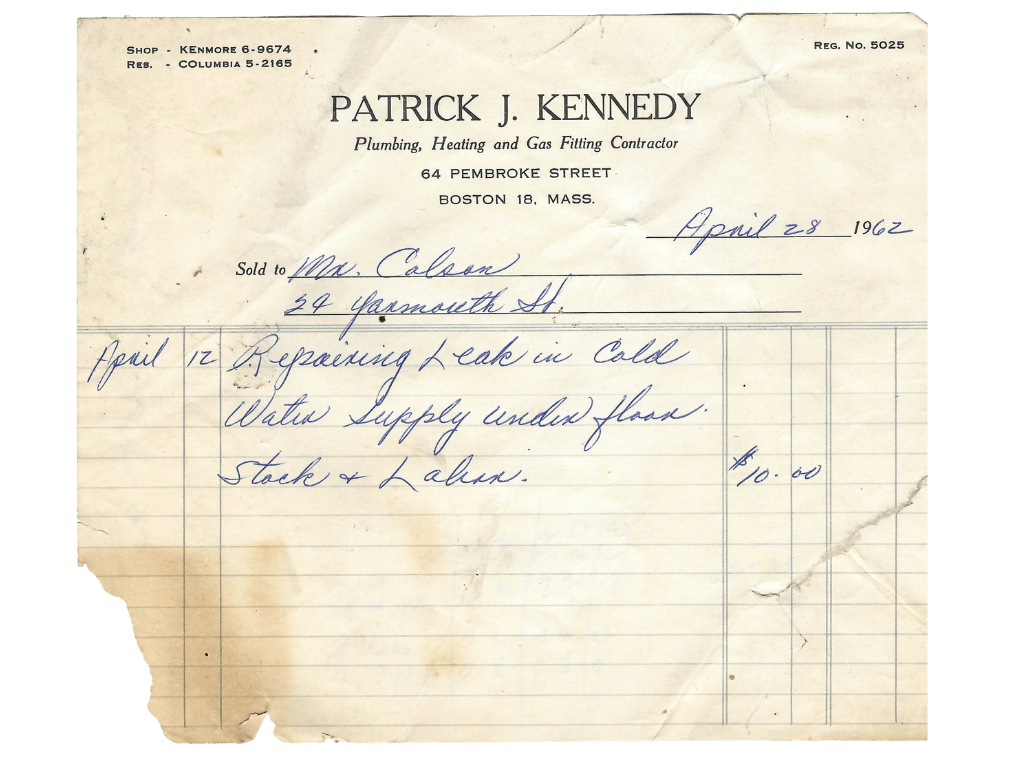 SHOP - KENMORE 6-9674
RES. - COLUMBIA 5-2165
REG. NO. 5025
PATRICK J. KENNEDY
Plumbing, Heating and Gas Fitting Contractor
64 PEMBROKE STREET
BOSTON 18, MASS.
April 28 1962
Sold to Mr. Colson
24 Yarmouth St.
April 12 Repairing Leak in Cold
Water supply under floor.
Stock & Labor. $10.00